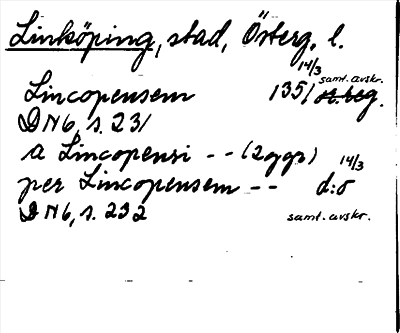 Linköping, stad, Österg. l.
14/3
Lincopensem 1351 samt. avskr.
DN6, s. 231
a Lincopensi -- (2 ggr)
per Lincopensem -- 14/3 d:o
DN6, s. 232 samt. avskr.